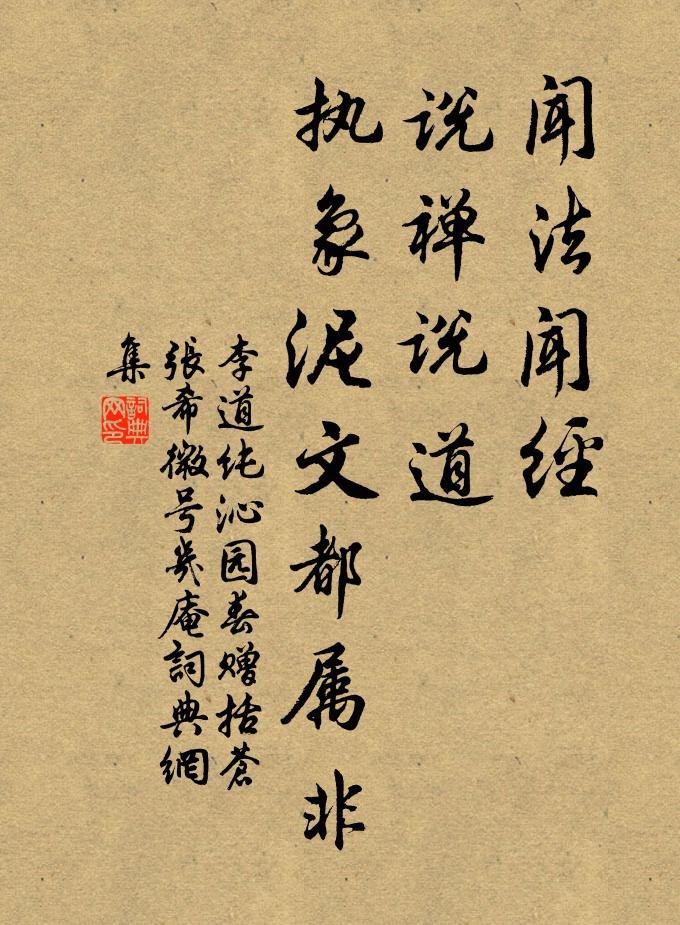 闻法闻经
说禅说道
执象泥文都属非
李道纯沁园春赠括苍
張希微号几庵詞典網
集
詞典
网印